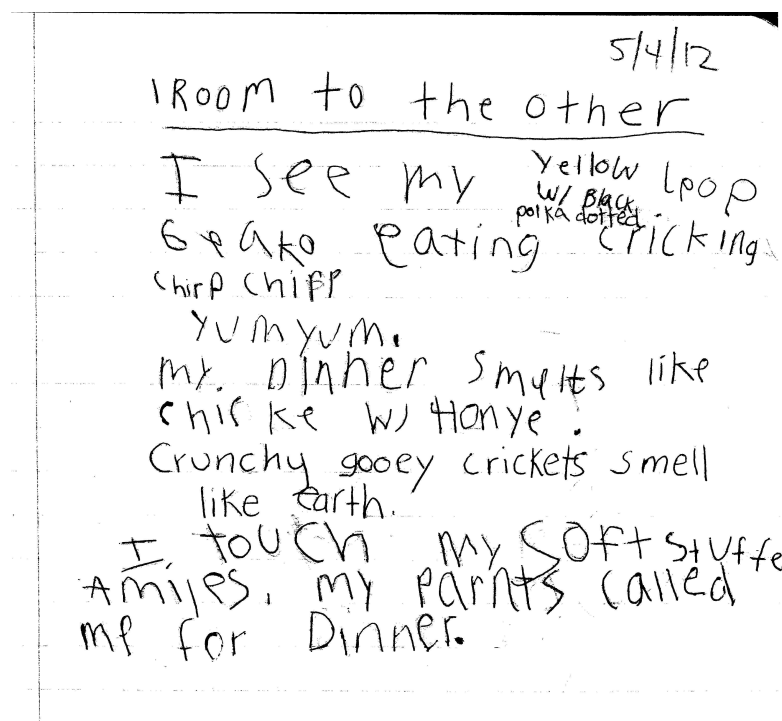 5/4/12
1 Room to the other
I see my yellow w/ Black polka dotted Lpop
Geako eating cricking
chirp chipp
YUM YUM.
my. Dinner smells like
chicke w/ Honye.
Crunchy gooey crickets smell
like earth.
I touch my soft stuffe
Amiles. my parnts called
me for Dinner.